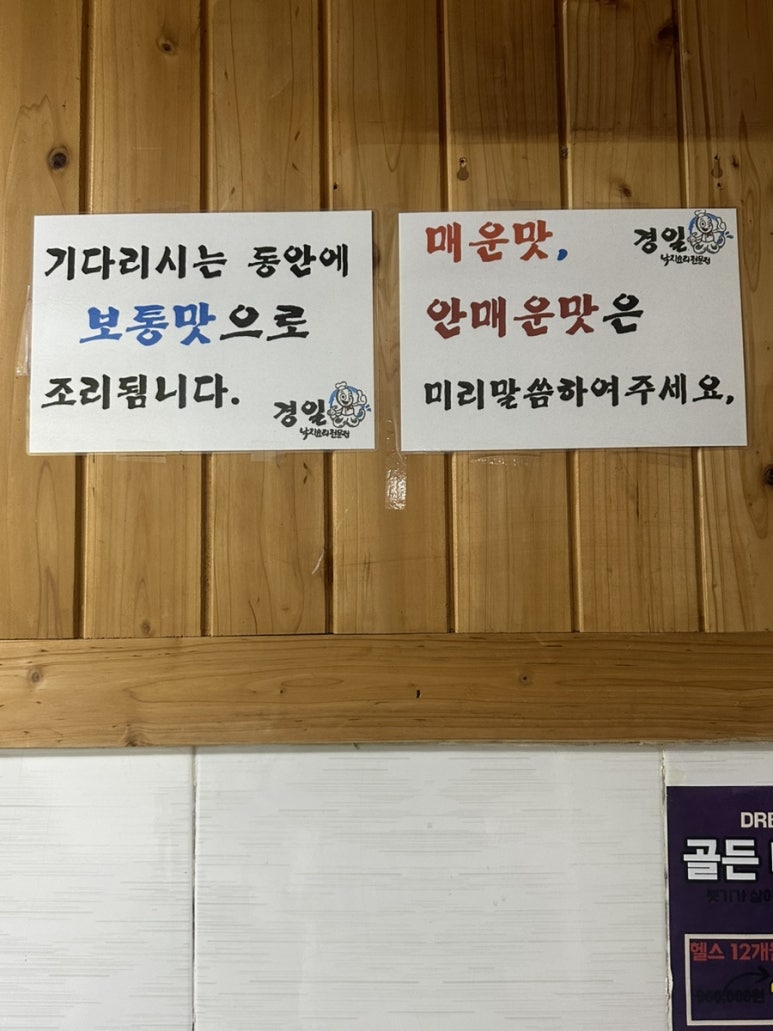 기다리시는 동안에
보통맛으로
조리됩니다.
경일
낙지요리전문점
매운맛,
안매운맛은
미리말씀하여주세요,
경일
낙지요리전문점
DRE
골든
헬스 12개